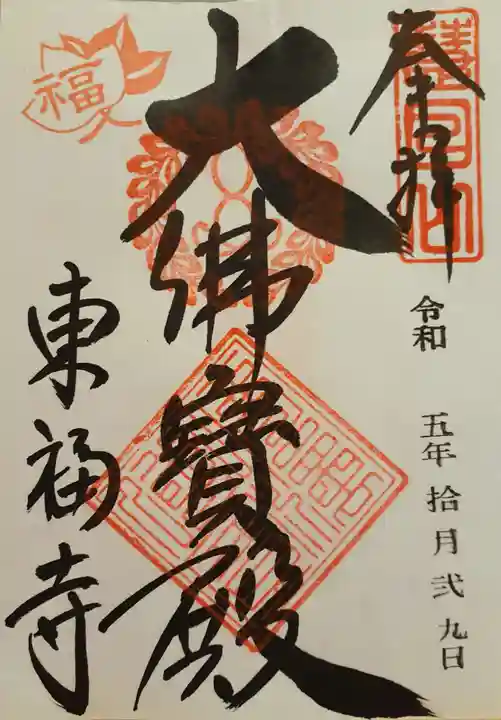 奉拝
令和 五年 拾月 弐九日
大佛寳殿
東福寺
福
慧日山